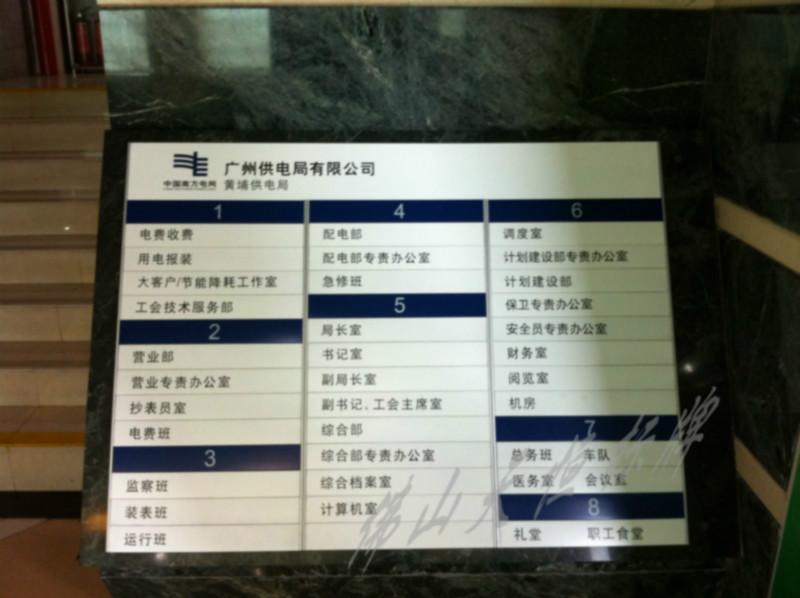 广州供电局有限公司
中国南方电网 黄埔供电局
1
电费收费
用电报装
大客户/节能降耗工作室
工会技术服务部
2
营业部
营业专责办公室
抄表员室
电费班
3
监察班
装表班
运行班
4
配电部
配电部专责办公室
急修班
5
局长室
书记室
副局长室
副书记、工会主席室
综合部
综合部专责办公室
综合档案室
计算机室
6
调度室
计划建设部专责办公室
计划建设部
保卫专责办公室
安全员专责办公室
财务室
阅览室
机房
7
总务班 车队
医务室 会议室
8
礼堂 职工食堂
佛山大恒标牌